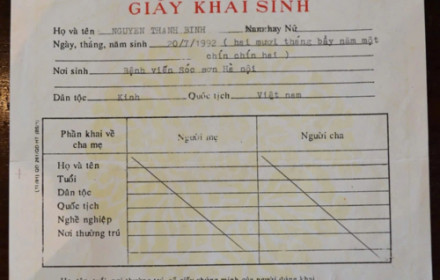 GIẤY KHAI SINH
Họ và tên NGUYEN THANH BINH Nam hay Nữ
Ngày, tháng, năm sinh 20/7/1992 ( hai mươi tháng bẩy năm một
chín chín hai )
Nơi sinh Bệnh viện Sóc sơn Hà nội
Dân tộc Kinh Quốc tịch Việt nam
Phần khai về cha mẹ Người mẹ Người cha
Họ và tên
Tuổi
Dân tộc
Quốc tịch
Nghề nghiệp
Nơi thường trú